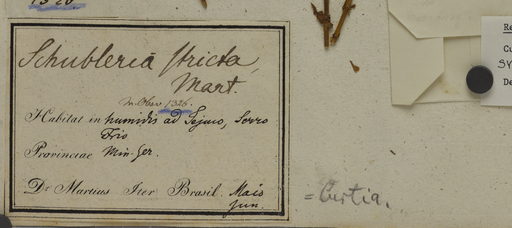 1326.
Schübleria stricta,
Mart.
m. Obs. 1326.
Habitat in humidis ad Tejuco, Serro
Frio
Provinciae Min-Ger.
Dr. Martius Iter Brasil. Maio
Jun.
= Curtia.
Re
Cu
De